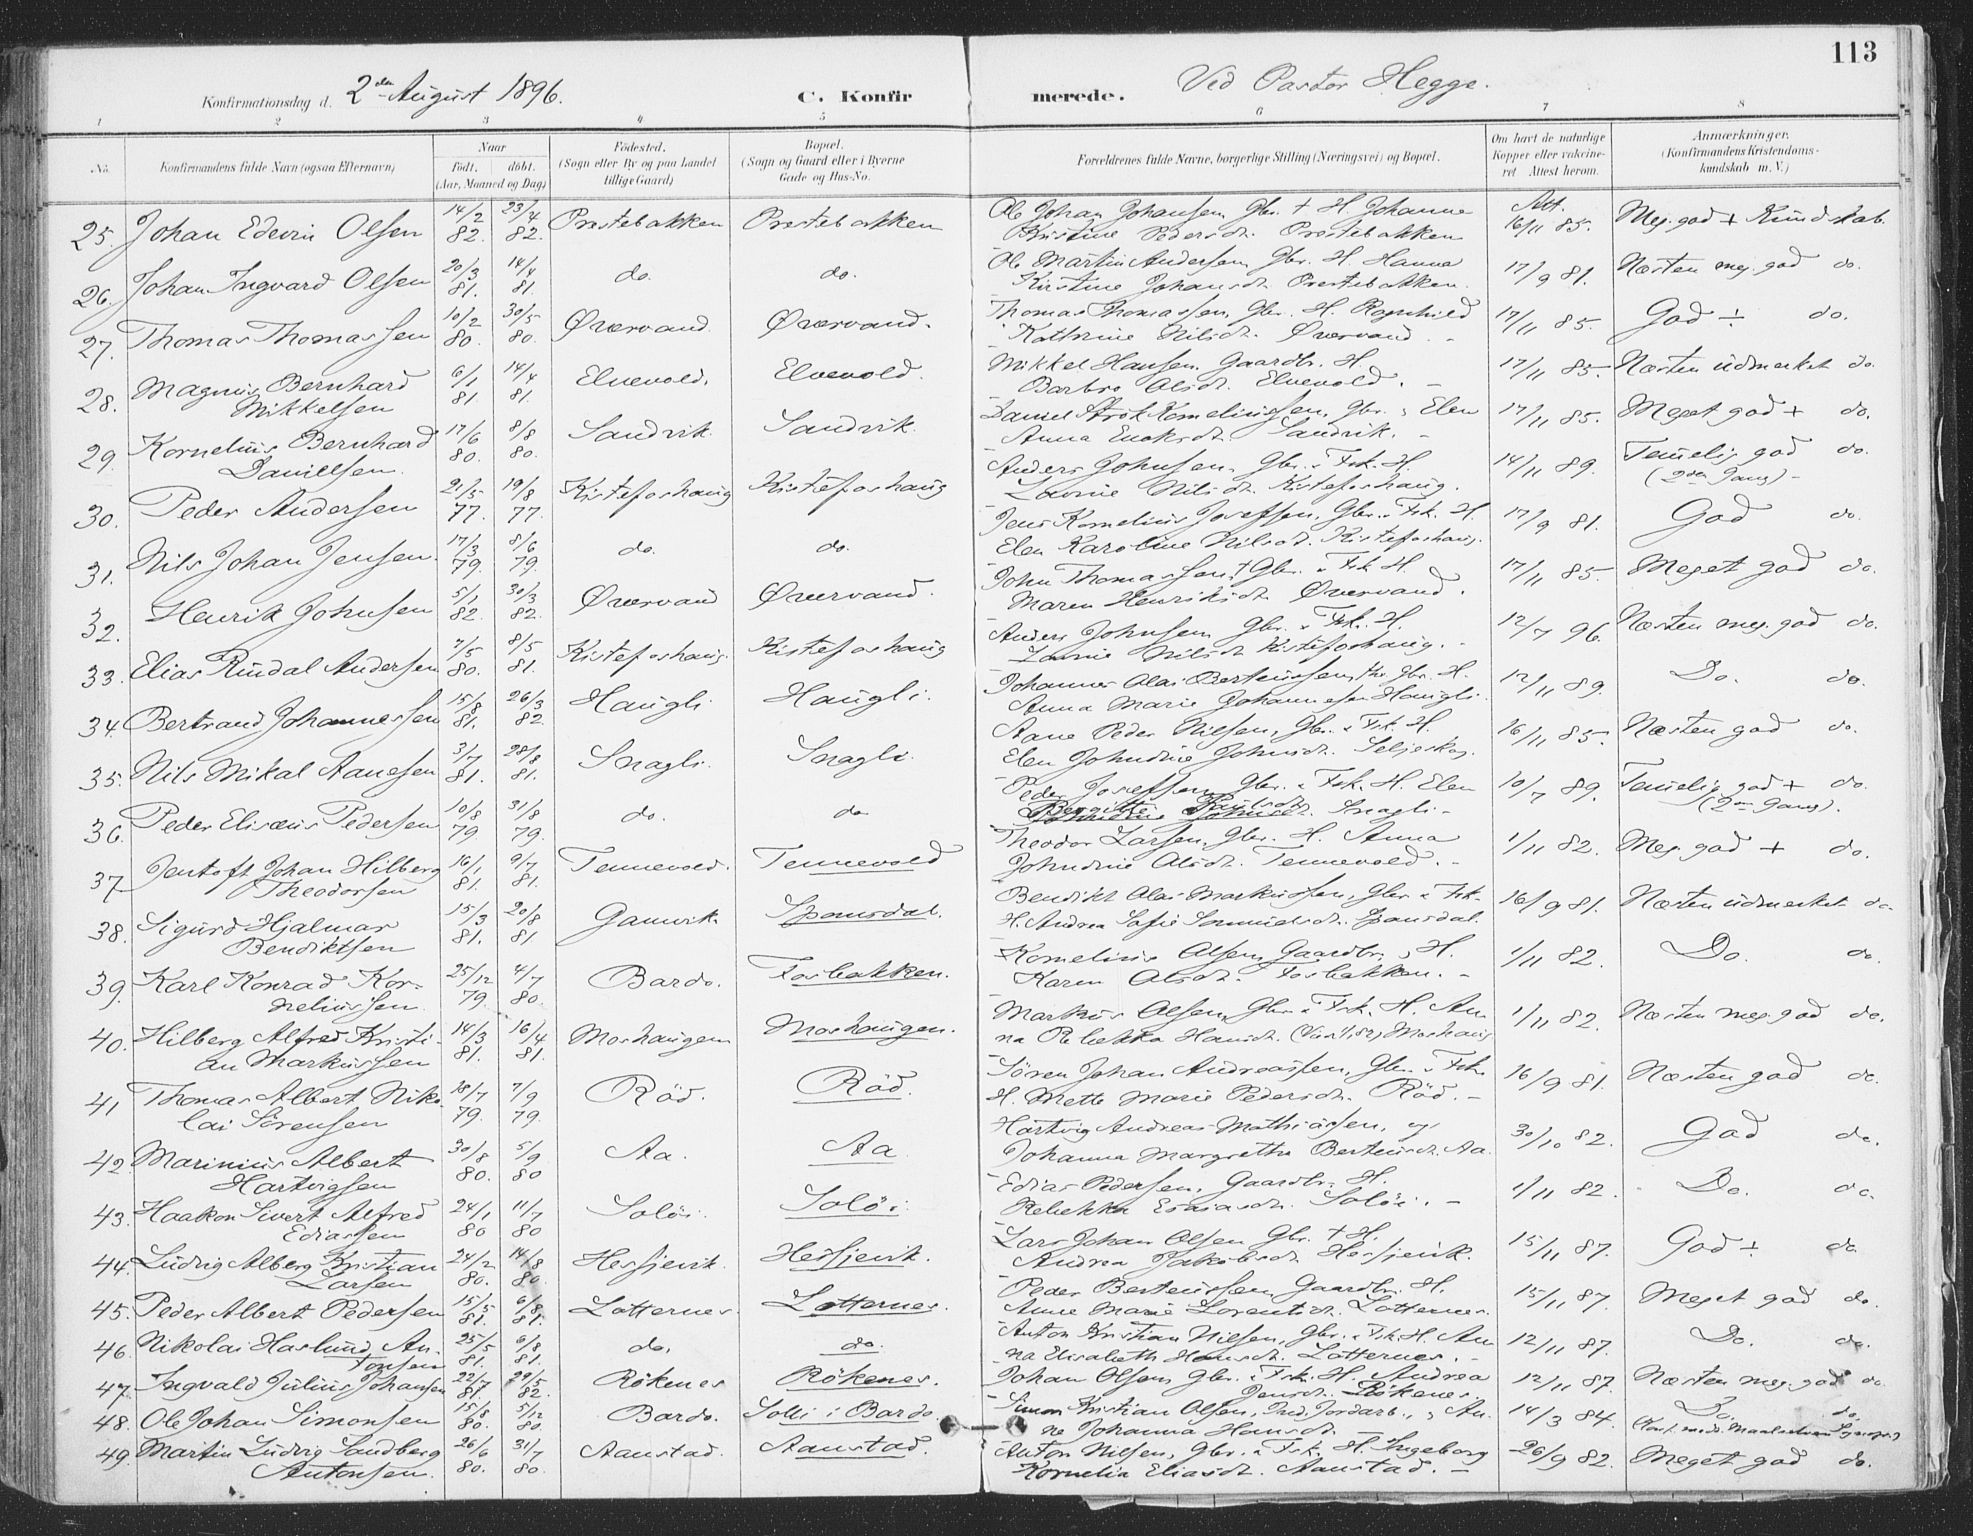 113
Konfirmationsdag d. 2den August 1896.
C. Konfirmerede.
Ved Pastor Hegge.
1 2 3 4 5 6 7 8
No. Konfirmandens fulde Navn (ogsaa Efternavn) Naar Født. døbt. (Aar, Maaned og Dag) Fødested. (Sogn eller By og paa Landet tillige Gaard) Bopæl. (Sogn og Gaard eller i Byerne Gade og Hus-No. Forældrenes fulde Navne, borgerlige Stilling (Næringsvei) og Bopæl. Om havt de naturlige Kopper eller vakcineret. Attest herom. Anmærkninger. (Konfirmandens Kristendomskundskab m. V.)
25. Johan Edevin Olsen 14/2 82. 23/4 82. Prestebakken Prestebakken Ole Johan Johansen, Gbr. + H. Johanne Kristine Pedersdt. Prestebakken Att. 16/11 85. Meg. god + Kundskab.
26. Johan Ingvard Olsen 20/3 81. 14/4 81 do. do. Ole Martin Andersen, Gbr. H. Hanna Kirstine Johansdt. Prestebakken. 17/9 81. Næsten meg. god do.
27. Thomas Thomassen 10/2 80. 30/5 80. Øvervand. Øvervand. Thomas Thomassen, Gbr. H. Ragnhild Kathrine Nilsdt. Øvervand. 17/11 85. God ÷ do.
28. Magnus Bernhard Mikkelsen 6/1 81 14/4 81. Elvevold. Elvevold. Mikkel Hansen, Gaardbr. H. Barbro Olsdt. Elvevold. 17/11 85. Næsten udmerket do.
29. Kornelius Bernhard Daniels­en. 17/6 80. 8/8 80. Sandvik. Sandvik. Daniel Korneliussen, Gbr. Elen Anna Enoksdt. Sandvik. 17/11 85. Meget god + do.
30. Peder Andersen 21/5 77. 19/8 77. Kistefoshaug Kistefoshaug Anders Johnsen, Gbr. & Fsk. H. Lovine Nilsdt. Kistefoshaug. 14/11 89. Temelig god do. (2den Gang)
31. Nils Johan Jensen. 17/3 79. 8/6 79. do. do. Jens Kornelius Josefsen, Gbr. & Fsk. H. Elen Karoline Nilsdt. Kistefoshaug. 17/9 81. God do.
32. Henrik Johnsen 5/1 82. 30/3 82. Øvervand Øvervand. John Thomassen, + Gbr. & Fsk. H. Maren Henriksdt. Øvervand. 17/11 85. Meget god do.
33. Elias Rindal Andersen 7/5 80. 8/5 81. Kistefoshaug. Kistefoshaug Anders Johnsen, Gbr. & Fsk. H. Lovine Nilsdt. Kistefoshaug. 12/7 96. Næsten meg. god do.
34. Bertrand Johannessen 15/8 81. 26/3 82 Haugli. Haugli. Johannes Olai Berteussen, Gbr. H. Anna Marie Johannesen Haugli. 12/11 89. Do. do.
35. Nils Mikal Aanesen 3/7 81. 28/8 81. Snagli. Snagli. Aane Peder Nilsen, Gbr. & Fsk. H. Elen Johndine Johnsdt. Seljeskog. 16/11 85. Næsten god do.
36. Peder Elisæus Pedersen 10/8 79 31/8 79. do. do Peder Josefsen, Gbr. & Fsk. H. Elen Snagli. 10/7 89. Temelig god + do. (2den Gang).
37. Jentoft Johan Hilberg Theodorsen 16/1 81. 9/7 81. Tennevold. Tennevold Theodor Larsen, Gbr. H. Anna Johndine Olsdt. Tennevold. 1/11 82. Meg. god + do.
38. Sigurd Hjalmar Bendiktsen 15/3 81. 20/8 81 Gamvik Spansdal. Bendikt Olai Markussen, Gbr. & Fsk. H. Andrea Sofie Spansdal. 16/9 81. Næsten udmerket do.
39. Karl Konrad Korneliussen. 25/12 79. 4/7 80. Bardo. Fosbakken. Kornelius Olsen, Gaardbr., H. Karen Olsdt. Fosbakken. 1/11 82. Do. do.
40. Hilberg Alfred Kristian Markussen 14/3 81. 16/4 81. Moshaugen Moshaugen. Markus Olsen, Gbr. & Fsk. H. Anna Rebekka Hansdt. Moshaug 1/11 82. Næsten meg. god do.
41 Thomas Albert Nikolai Sörensen 18/7 79. 7/9 79. Röd. Röd. Sören Johan Andreassen, Gbr. & Fsk. H. Mette Marie Pedersdt. Röd. 16/9 81. Næsten god do.
42. Marinius Albert Hartvigsen 30/8 80. 5/9 80 Aa. Aa Hartvig Andreas Mathiassen, og Johanna Margrethe Berteusdt. Aa. 30/10 82. God do.
43. Haakon Sivert Alfred Ediassen 24/1 80 11/7 80 Solöi. Solöi Edias Pedersen, Gaardbr. H. Rebekka Esaiasdt. Solöi. 1/11 82. Do. do
44. Ludvig Alberg Kristian Larsen 24/2 80. 14/8 80. Hesjevik. Hesjevik. Lars Johan Olsen, Gbr. + H. Andrea Jakobsdt. Hesjevik. 15/11 87. God ÷ do.
45. Peder Albert Pedersen 15/5 81. 6/8 81. Lotternes. Lotternes. Peder Berteussen, Gaardbr. H. Anne Marie Lorentsdt. Lotternes. 15/11 87. Meget god do.
46. Nikolai Haslund Antonsen 25/5 81. 6/8 81. do. do. Anton Kristian Nilsen, Gbr. & Fsk. H. Anna Elisabeth Hansdt. Lotternes. 12/11 87. Do. do.
47. Ingvald Julius Johansen 22/7 81. 29/5 82. Rökenes Rökenes. Johan Olsen, Gbr. & Fsk. H. Andrea Jensdt. Rökenes. 12/11 87. Næsten meg. god do.
48. Ole Johan Simonsen 15/8 80. 5/12 80. Bardo. Solli i Bardo Simon Kristian Olsen, Ind. Jordarb., Anne Johanna Hansdt. 14/3 84. Do. do.
49. Martin Ludvig Sandberg Antonsen. 26/6 80. 31/7 80. Aanstad. Aanstad. Anton Nilsen, Gbr. & Fsk. H. Ingeborg Kornelia Eliasdt. Aanstad. 26/9 82. Meget god do.